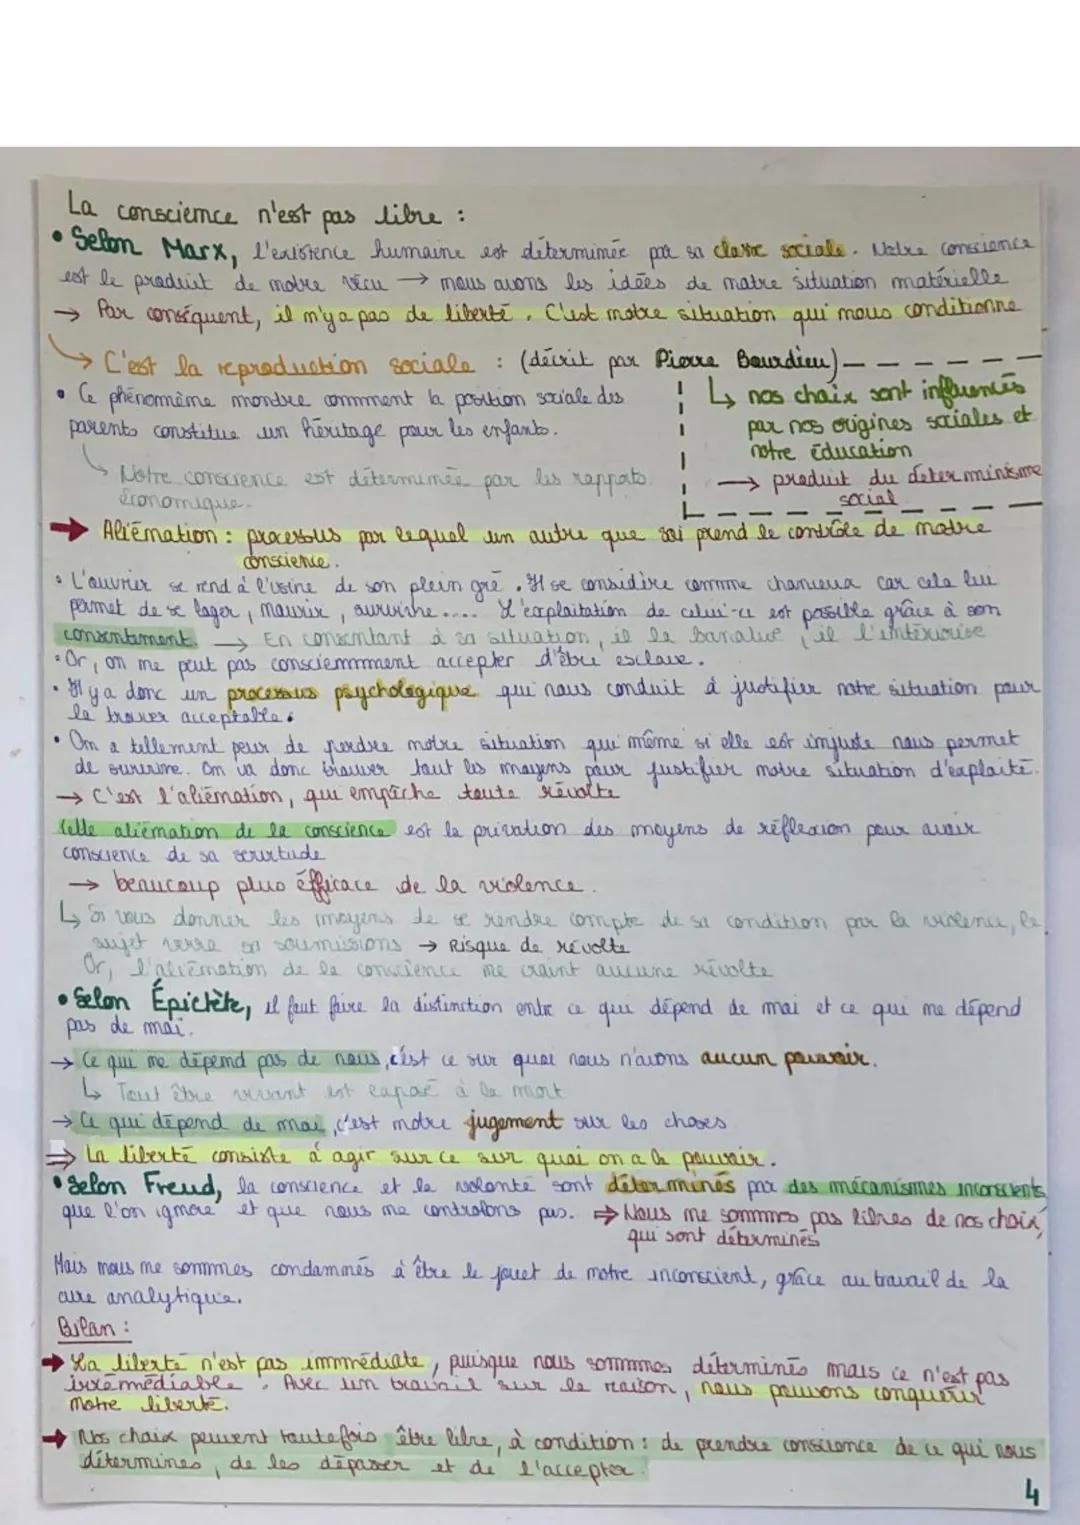 La conscience n'est pas libre :
• Selon Marx, l'existence humaine est déterminée par sa classe sociale. Notre conscience
est le produit de notre vécu → nous avons les idées de notre situation matérielle
→ Par conséquent, il n'y a pas de liberté. C'est notre situation qui nous conditionne
→ C'est la reproduction sociale : (décrit par Pierre Bourdieu)
• Ce phénomène montre comment la position sociale des
parents constitue un héritage pour les enfants.
↳ Notre conscience est déterminée par les rapports
économique.
↳ nos choix sont influencés
par nos origines sociales et
notre éducation
→ produit du déterminisme
social
→ Aliénation : processus par lequel un autre que soi prend le contrôle de notre
conscience.
• L'ouvrier se rend à l'usine de son plein gré. Il se considère comme chanceux car cela lui
permet de se loger, nourrir, survivre.... L'exploitation de celui-ci est possible grâce à son
consentement. → En consentant à sa situation, il la banalise, il l'intériorise
• Or, on ne peut pas consciemmment accepter d'être esclave.
• Il y a donc un processus psychologique qui nous conduit à justifier notre situation pour
la trouver acceptable.
• On a tellement peur de perdre notre situation qui même si elle est injuste nous permet
de survivre. On va donc trouver tout les moyens pour justifier notre situation d'exploité.
→ C'est l'aliénation, qui empêche toute révolte
Cette aliénation de la conscience est la privation des moyens de réflexion pour avoir
conscience de sa servitude
→ beaucoup plus éfficace de la violence.
↳ Si vous donner les moyens de se rendre compte de sa condition par la violence, le
sujet verra sa soumissions → Risque de révolte
Or, l'aliénation de la conscience ne craint aucune révolte
• Selon Épictète, il faut faire la distinction entre ce qui dépend de moi et ce qui ne dépend
pas de moi.
→ Ce qui ne dépend pas de nous, c'est ce sur quoi nous n'avons aucun pouvoir.
↳ Tout être vivant est exposé à la mort
→ Ce qui dépend de moi, c'est notre jugement sur les choses
⇒ La liberté consiste à agir sur ce sur quoi on a le pouvoir.
• Selon Freud, la conscience et la volonté sont déterminés par des mécanismes inconscients,
que l'on ignore et que nous ne contrôlons pas. ⇒ Nous ne sommes pas libres de nos choix,
qui sont déterminés
Mais nous ne sommes condamnés à être le jouet de notre inconscient, grâce au travail de la
cure analytique.
Bilan :
→ La liberté n'est pas immmédiate, puisque nous sommmes déterminés mais ce n'est pas
irrémédiable. Avec un travail sur la raison, nous pouvons conquérir
notre liberté.
→ Nos choix peuvent toutefois être libre, à condition : de prendre conscience de ce qui nous
détermines, de les dépasser et de l'accepter.
4